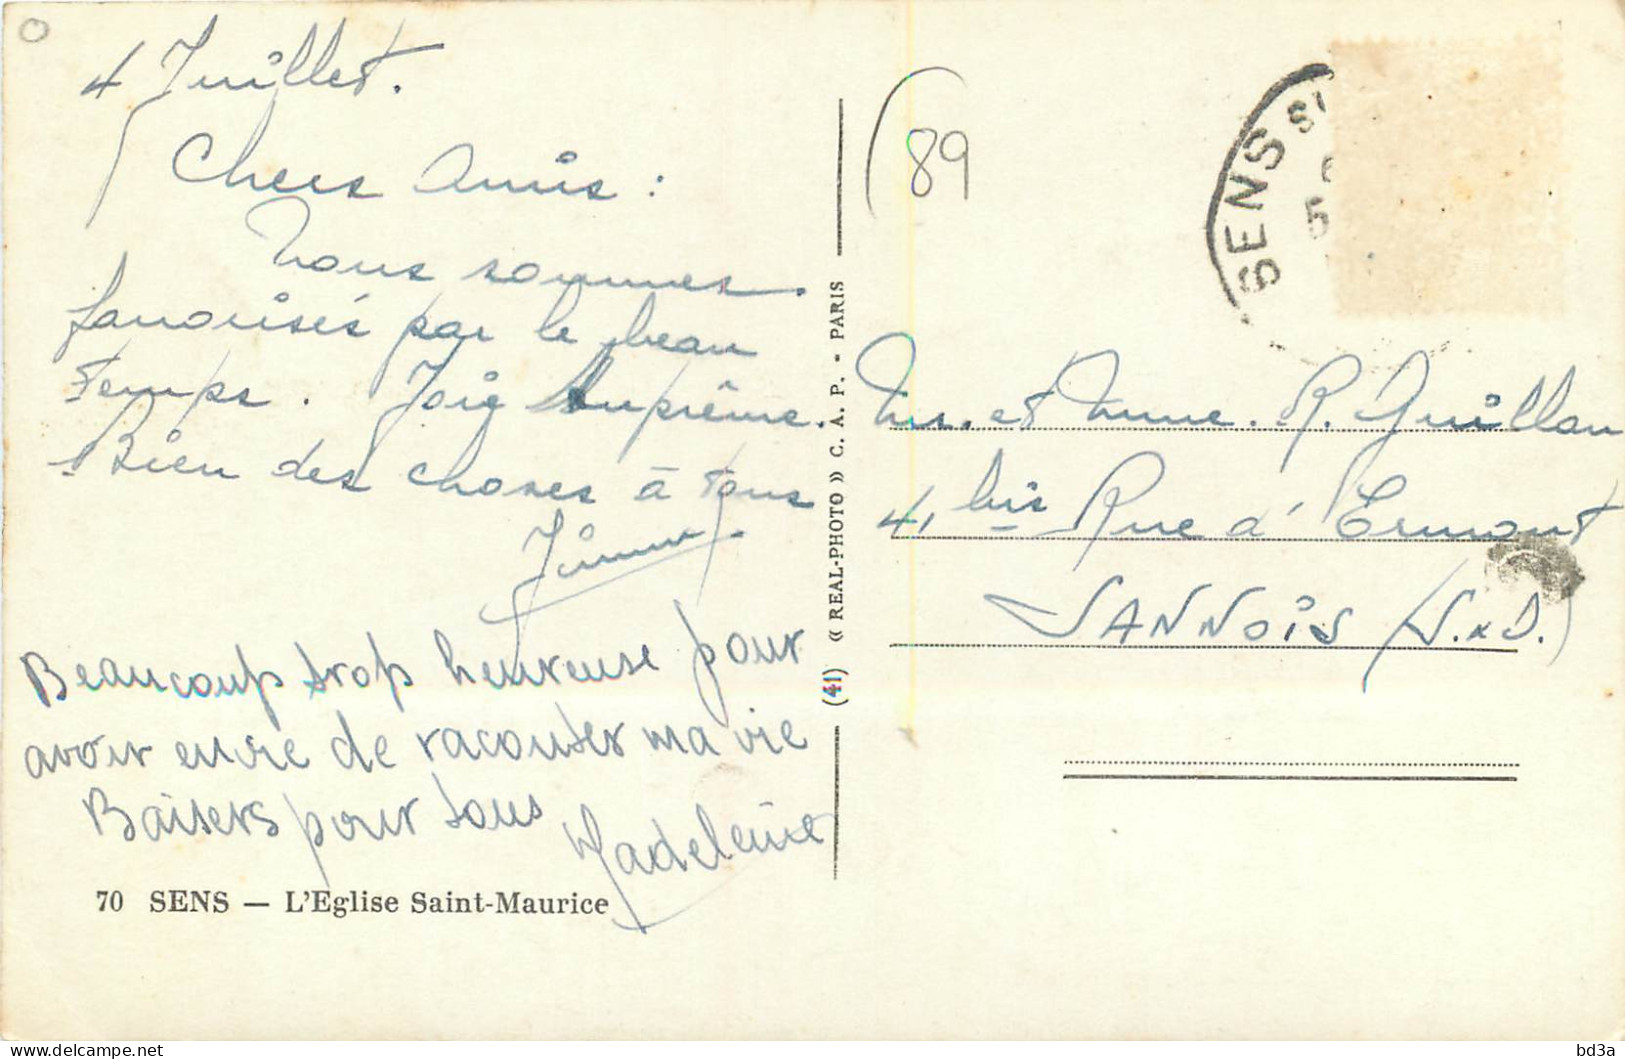 4 Juillet.
Chers Amis :
Nous sommes
favorisés par le beau
temps. Joie suprême.
Bien des choses à tous
Jimmy.
Beaucoup trop heureuse pour
avoir envie de raconter ma vie
Baisers pour tous
Madeleine
70 SENS — L'Eglise Saint-Maurice
(41) « REAL-PHOTO » C. A. P. - PARIS
(89
SENS
Mr. et Mme. R. Guillou
41 bis Rue d'Ermont
SANNOIS (S.&O.)
bd3a